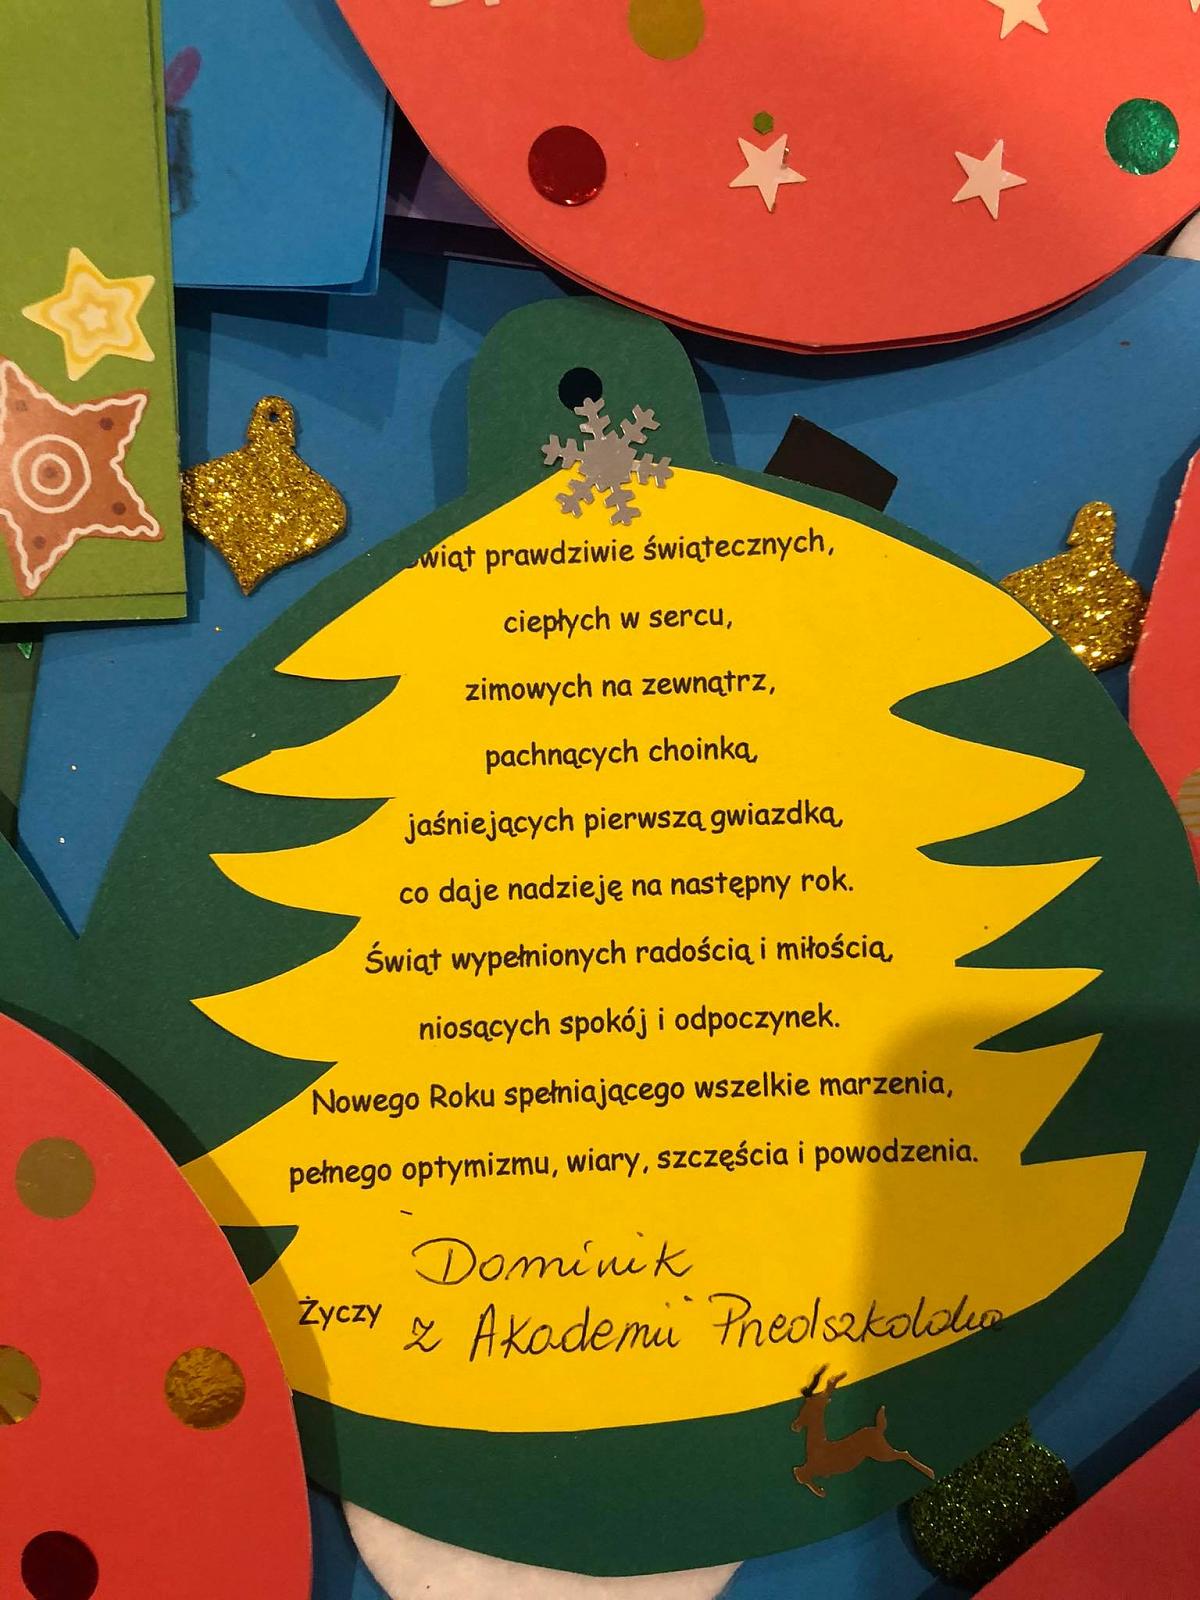 Świąt prawdziwie świątecznych,
ciepłych w sercu,
zimowych na zewnątrz,
pachnących choinką,
jaśniejących pierwszą gwiazdką,
co daje nadzieję na następny rok.
Świąt wypełnionych radością i miłością,
niosących spokój i odpoczynek.
Nowego Roku spełniającego wszelkie marzenia,
pełnego optymizmu, wiary, szczęścia i powodzenia.
Dominik
Życzy z Akademii Przedszkolaka